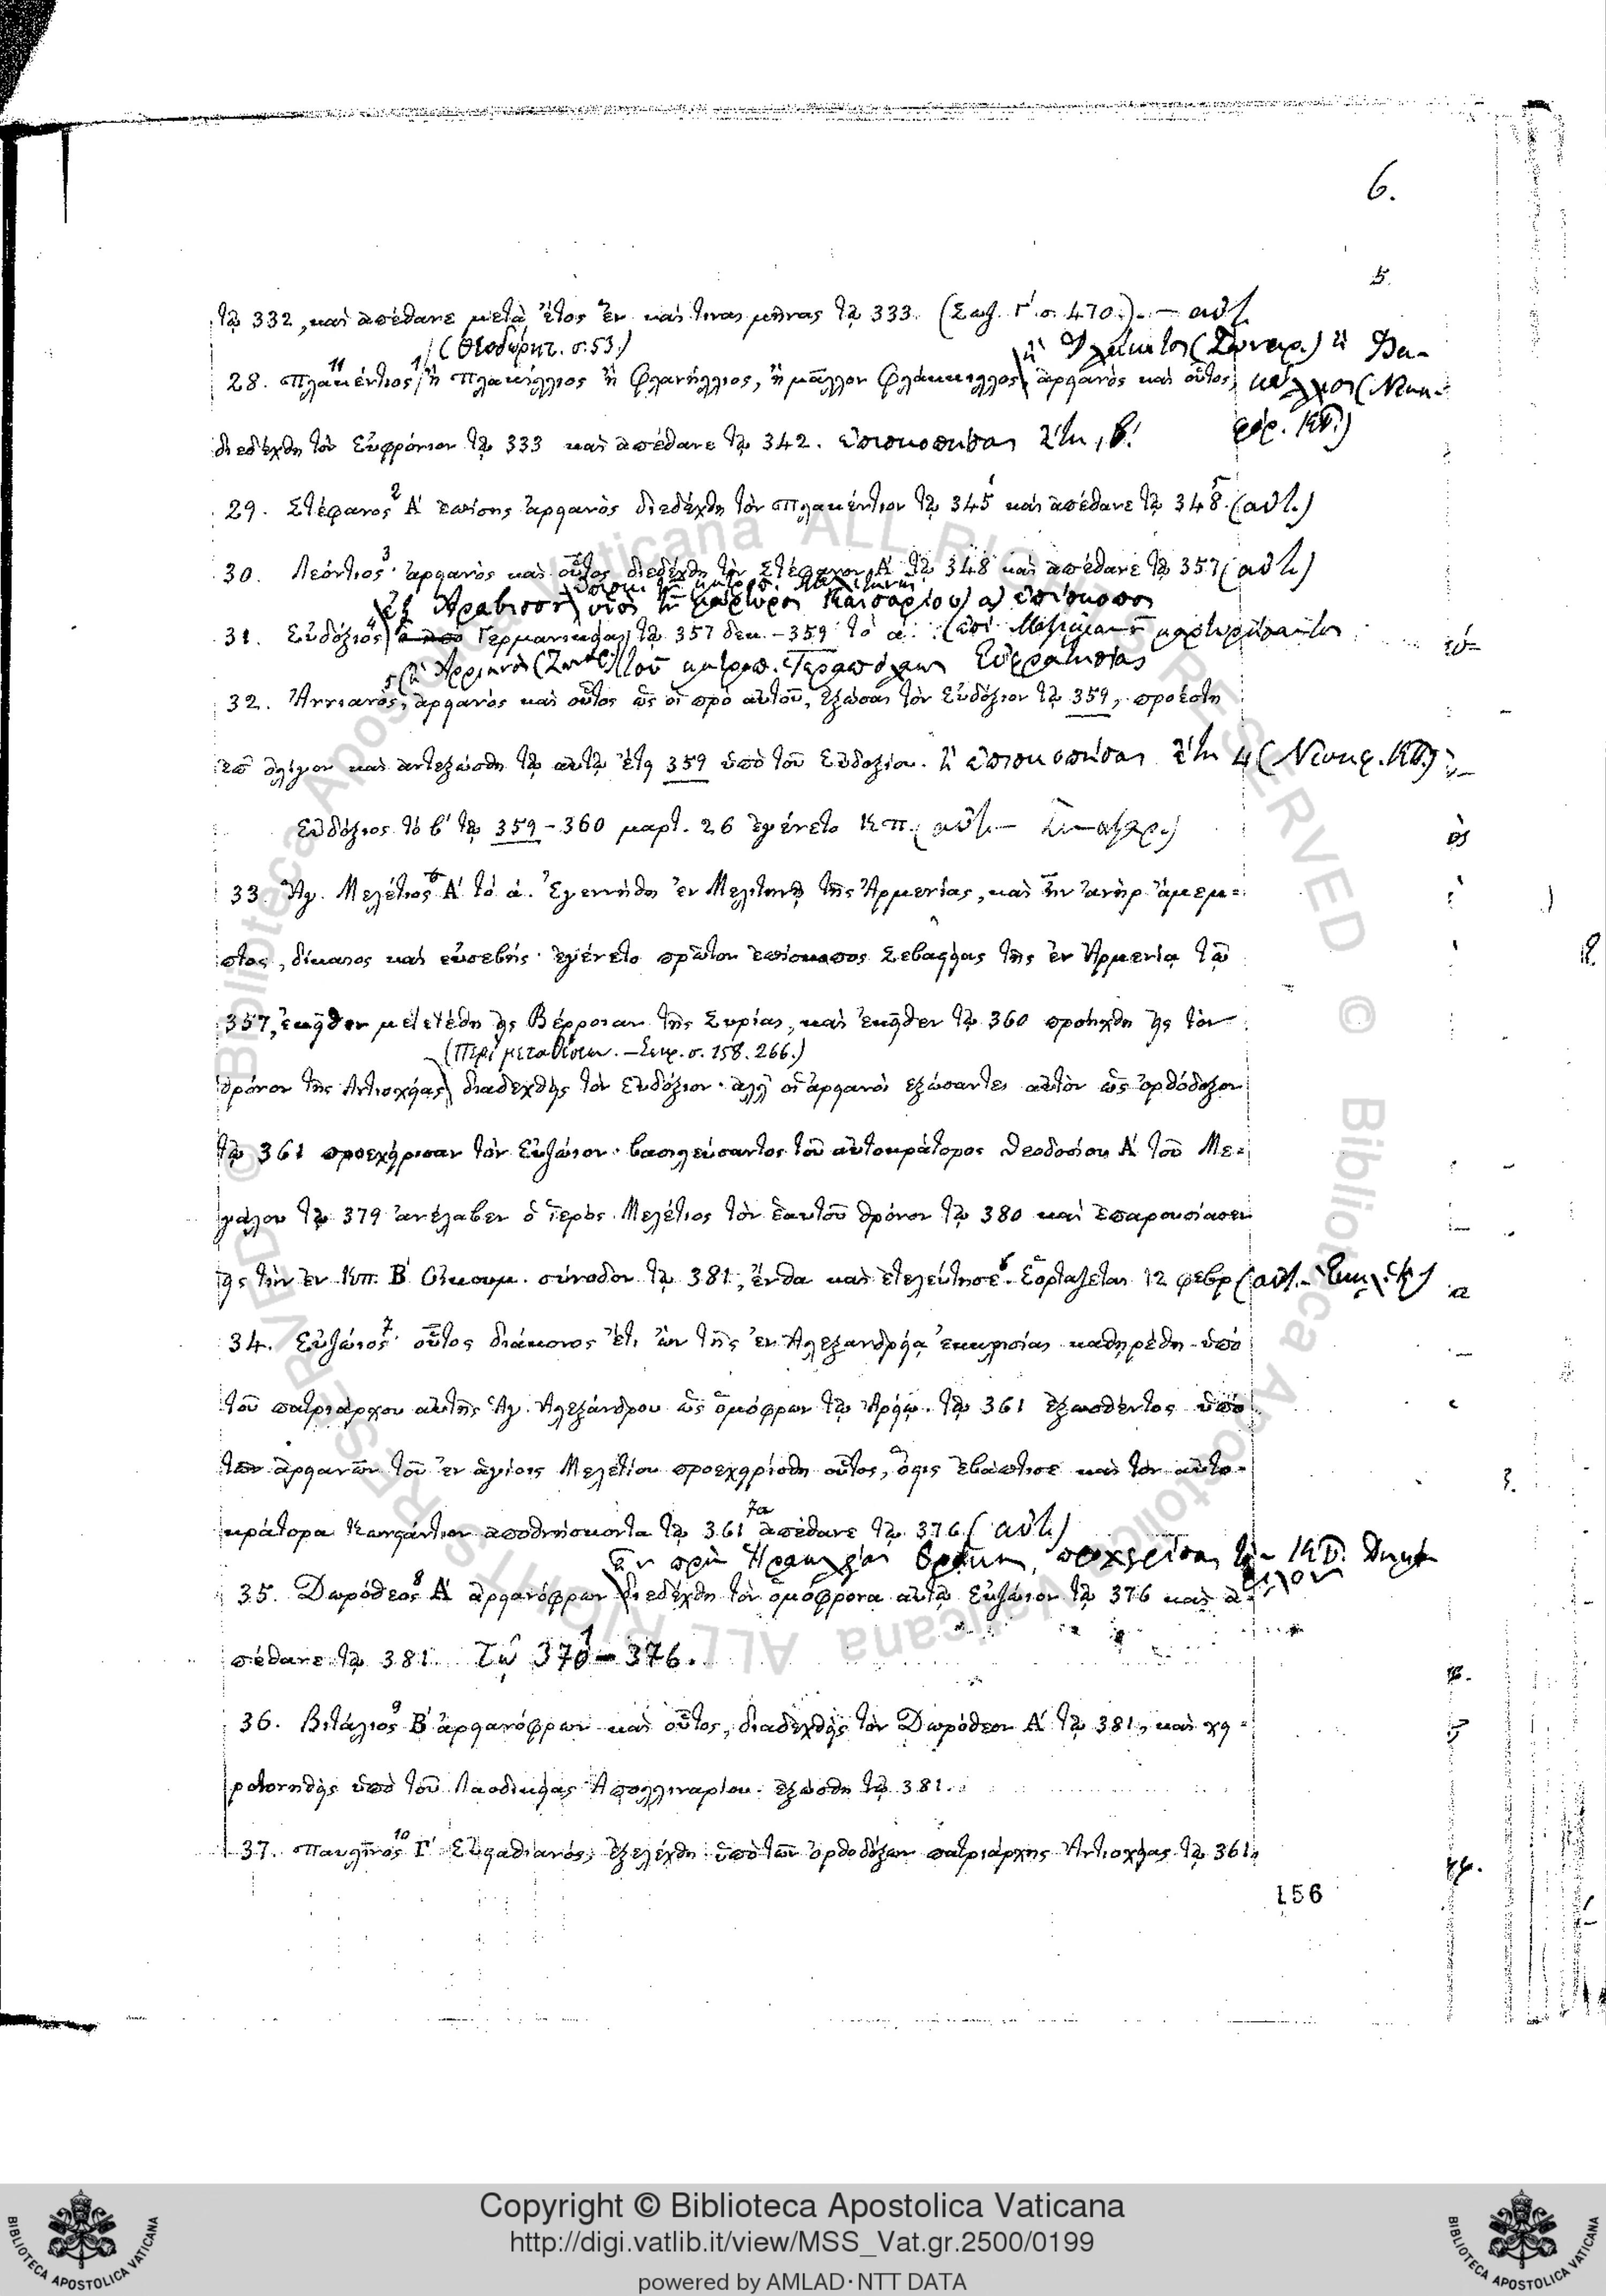 6.
5.
τῷ 332, καὶ ἀπέθανε μετὰ ἔτος ἓν καί τινας μῆνας τῷ 333. (Σωζ. Γ΄ σ. 470.). — αὐτ.
(Θεοδώρητ. σ. 53.)
28. Πλακέντιος ἢ Πλακίλλιος ἢ Φλανίλλιος, ἢ μᾶλλον Φλάκκιλλος ἀρειανὸς καὶ οὗτος,
διεδέχθη τὸν Εὐφρόνιον τῷ 333 καὶ ἀπέθανε τῷ 342. ἐπισκοπήσας ἔτη ιβ΄.
29. Στέφανος Α΄ ἐπίσης ἀρειανὸς διεδέχθη τὸν Πλακέντιον τῷ 345 καὶ ἀπέθανε τῷ 348. (αὐτ.)
30. Λεόντιος· ἀρειανὸς καὶ οὗτος διεδέχθη τὸν Στέφανον Α΄ τῷ 348 καὶ ἀπέθανε τῷ 357 (αὐτ.)
ἐξ Ἀραβισσοῦ υἱὸς τοῦ μάρτυρος Καισαρίου ἐπίσκοπος
31. Εὐδόξιος Γερμανικείας τῷ 357 δεκ. – 359 τὸ α΄.
32. Ἀννιανὸς, ἀρειανὸς καὶ οὗτος ὡς οἱ πρὸ αὐτοῦ, ἐξώσας τὸν Εὐδόξιον τῷ 359, προέστη
ἐπ᾽ ὀλίγον καὶ ἀντεξώσθη τῷ αὐτῷ ἔτει 359 ὑπὸ τοῦ Εὐδοξίου. ἢ ἐπισκοπήσας ἔτη 4 (Νικηφ. ΚΠ.)
Εὐδόξιος τὸ β΄ τῷ 359 – 360 μαρτ. 26 ἐγένετο Κπ. (αὐτ.
33. Ἅγ. Μελέτιος Α΄ τὸ α΄. Ἐγεννήθη ἐν Μελιτηνῇ τῆς Ἀρμενίας, καὶ ἦν ἀνὴρ ἄμεμ-
πτος, δίκαιος καὶ εὐσεβής· ἐγένετο πρῶτον ἐπίσκοπος Σεβαστείας τῆς ἐν Ἀρμενίᾳ τῷ
357, ἐκεῖθεν μετετέθη εἰς Βέρροιαν τῆς Συρίας, καὶ ἐκεῖθεν τῷ 360 προήχθη εἰς τὸν
(Περὶ μεταθέσεων. – Σωκρ. σ. 158. 266.)
θρόνον τῆς Ἀντιοχείας διαδεχθεὶς τὸν Εὐδόξιον· ἀλλ᾽ οἱ ἀρειανοὶ ἐξώσαντες αὐτὸν ὡς ὀρθόδοξον
τῷ 361 προεχείρισαν τὸν Εὐζώιον· βασιλεύσαντος τοῦ αὐτοκράτορος Θεοδοσίου Α΄ τοῦ Με-
γάλου τῷ 379 ἀνέλαβεν ὁ ἱερὸς Μελέτιος τὸν ἑαυτοῦ θρόνον τῷ 380 καὶ ἐπαρουσίασεν
εἰς τὴν ἐν Κπ. Β΄ Οἰκουμ. σύνοδον τῷ 381, ἔνθα καὶ ἐτελεύτησε. Ἑορτάζεται 12 φεβρ (αὐτ.
34. Εὐζώιος· οὗτος διάκονος ἔτι ὢν τῆς ἐν Ἀλεξανδρείᾳ ἐκκλησίας καθῃρέθη ὑπὸ
τοῦ πατριάρχου αὐτῆς Ἁγ. Ἀλεξάνδρου ὡς ὁμόφρων τῷ Ἀρείῳ. τῷ 361 ἐξωσθέντος ὑπὸ
τῶν ἀρειανῶν τοῦ ἐν ἁγίοις Μελετίου προεχειρίσθη οὗτος, ὅστις ἐβάπτισε καὶ τὸν αὐτο-
κράτορα Κωνστάντιον ἀποθνήσκοντα τῷ 361 ἀπέθανε τῷ 376 (αὐτ.)
35. Δωρόθεος Α΄ ἀρειανόφρων διεδέχθη τὸν ὁμόφρονα αὐτῷ Εὐζώιον τῷ 376 καὶ ἀ-
πέθανε τῷ 381. τῷ 370 – 376.
36. Βιτάλιος Β΄ ἀρειανόφρων καὶ οὗτος, διαδεχθεὶς τὸν Δωρόθεον Α΄ τῷ 381, καὶ χει-
ροτονηθεὶς ὑπὸ τοῦ Λαοδικείας Ἀπολλιναρίου ἐξώσθη τῷ 381.
37. Παυλῖνος Γ΄ Εὐσταθιανός, ἐξελέχθη ὑπὸ τῶν ὀρθοδόξων πατριάρχης Ἀντιοχείας τῷ 361,
156
© Biblioteca Apostolica Vaticana ALL RIGHTS RESERVED
Copyright © Biblioteca Apostolica Vaticana
http://digi.vatlib.it/view/MSS_Vat.gr.2500/0199
powered by AMLAD·NTT DATA
BIBLIOTECA APOSTOLICA VATICANA
BIBLIOTECA APOSTOLICA VATICANA